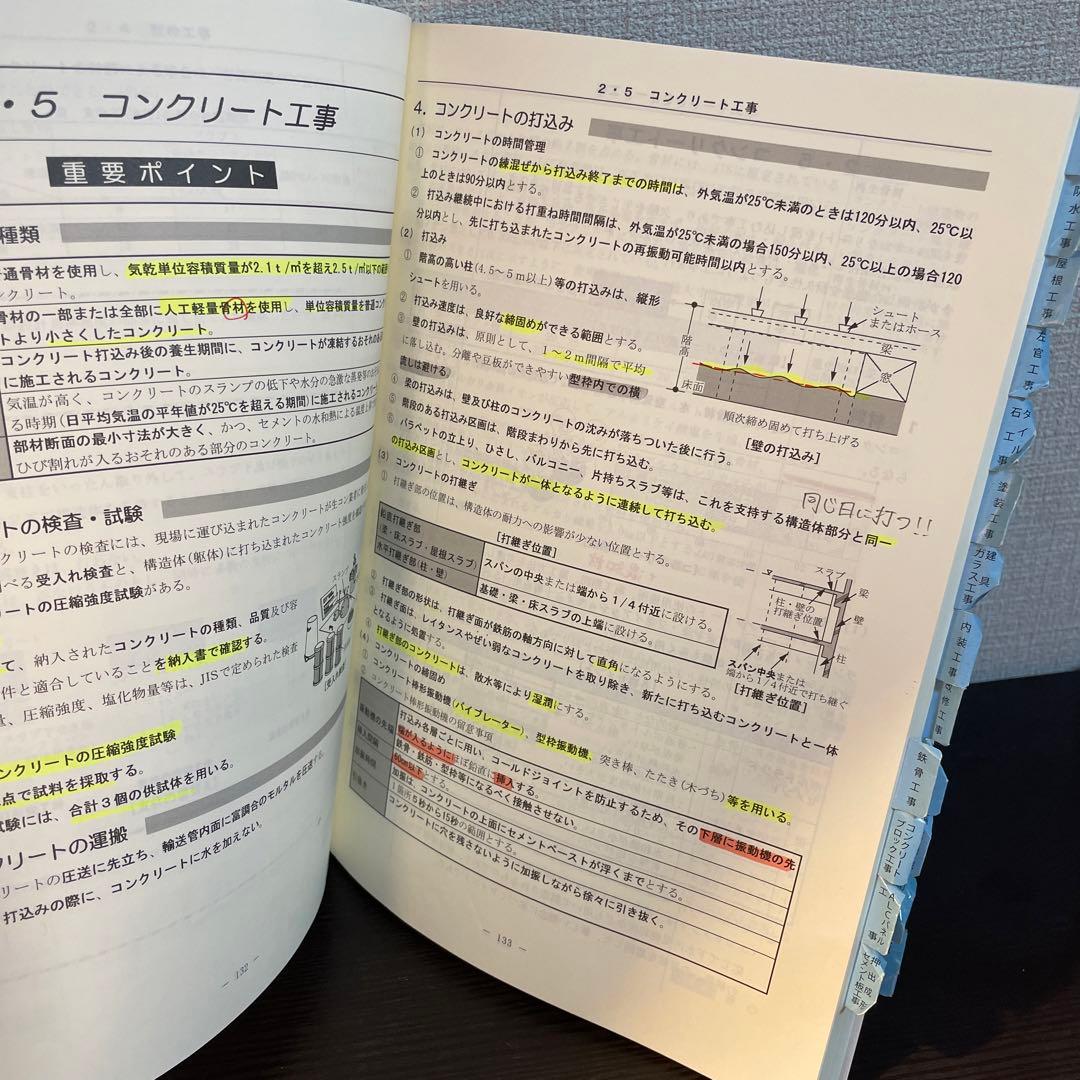 ・5 コンクリート工事
重要ポイント
種類
通骨材を使用し、気乾単位容積質量が2.1t/㎥を超え2.5t/㎥以下の
ンクリート。
骨材の一部または全部に人工軽量骨材を使用し、単位容積質量を普通コン
トより小さくしたコンクリート。
コンクリート打込み後の養生期間に、コンクリートが凍結するおそれの
に施工されるコンクリート。
気温が高く、コンクリートのスランプの低下や水分の急激な蒸発等の
る時期(日平均気温の平年値が25℃を超える期間)に施工されるコンクリート。
部材断面の最小寸法が大きく、かつ、セメントの水和熱による温度上昇で
ひび割れが入るおそれのある部分のコンクリート。
トの検査・試験
ンクリートの検査には、現場に運び込まれたコンクリートが生コン業者に
べる受入れ検査と、構造体(躯体)に打ち込まれたコンクリート強度を
リートの圧縮強度試験がある。
スランプ
て、納入されたコンクリートの種類、品質及び容
件と適合していることを納入書で確認する。
は、圧縮強度、塩化物量等は、JISで定められた検査
ンクリートの圧縮強度試験
点で試料を採取する。
試験には、合計3個の供試体を用いる。
クリートの運搬
リートの圧送に先立ち、輸送管内面に富調合のモルタルを圧送する。
打込みの際に、コンクリートに水を加えない。
－ 132 －
2・5 コンクリート工事
4. コンクリートの打込み
(1) コンクリートの時間管理
① コンクリートの練混ぜから打込み終了までの時間は、外気温が25℃未満のときは120分以内、25℃以
上のときは90分以内とする。
② 打込み継続中における打重ね時間間隔は、外気温が25℃未満の場合150分以内、25℃以上の場合120
分以内とし、先に打ち込まれたコンクリートの再振動可能時間以内とする。
(2) 打込み
① 階高の高い柱(4.5～5m以上)等の打込みは、縦形
シュートを用いる。
② 打込み速度は、良好な締固めができる範囲とする。
③ 壁の打込みは、原則として、1～2m間隔で平均
に落し込む。分離や豆板ができやすい型枠内での横
流しは避ける
④ 梁の打込みは、壁及び柱のコンクリートの沈みが落ちついた後に行う。
⑤ 階段のある打込み区画は、階段まわりから先に打ち込む。
⑥ パラペットの立上り、ひさし、バルコニー、片持ちスラブ等は、これを支持する構造体部分と同一
の打込み区画とし、コンクリートが一体となるように連続して打ち込む。
シュート
またはホース
梁
窓
階高
床面
順次締め固めて打ち上げる
[壁の打込み]
同じ日に打つ!!
(3) コンクリートの打継ぎ
① 打継ぎ部の位置は、構造体の耐力への影響が少ない位置とする。
[打継ぎ位置]
鉛直打継ぎ部
(梁・床スラブ・屋根スラブ)
スパンの中央または端から1/4付近に設ける。
水平打継ぎ部(柱・壁)
基礎・梁・床スラブの上端に設ける。
スラブ
梁
柱・壁の
打継ぎ位置
壁
柱
スパン中央または
端から1/4付近で打ち継ぐ
[打継ぎ位置]
② 打継ぎ部の形状は、打継ぎ面が鉄筋の軸方向に対して直角になるようにする。
③ 打継ぎ面は、レイタンスやぜい弱なコンクリートを取り除き、新たに打ち込むコンクリートと一体
となるように処置する。
④ 打継ぎ部のコンクリートは、散水等により湿潤にする。
(4) コンクリートの締固め
① コンクリート棒形振動機(バイブレーター)、型枠振動機、突き棒、たたき(木づち)等を用いる。
② コンクリート棒形振動機の留意事項
振動機の先端
打込み各層ごとに用い、コールドジョイントを防止するため、その下層に振動機の先
端が入るようにほぼ鉛直に挿入する。
鉄骨・鉄筋・型枠等になるべく接触させない。
挿入間隔
60cm以下とする。
加振時間
加振は、コンクリートの上面にセメントペーストが浮くまでとする。
1箇所5秒から15秒の範囲とする。
引抜き
コンクリートに穴を残さないように加振しながら徐々に引き抜く。
－ 133 －
防水工事
屋根工事
左官工事
タイル
石工事
塗装工事
建具
ガラス工事
内装工事
改修工事
鉄骨工事
コンクリート
ブロック工事
ALCパネル
工事
押出成形
セメント板工事